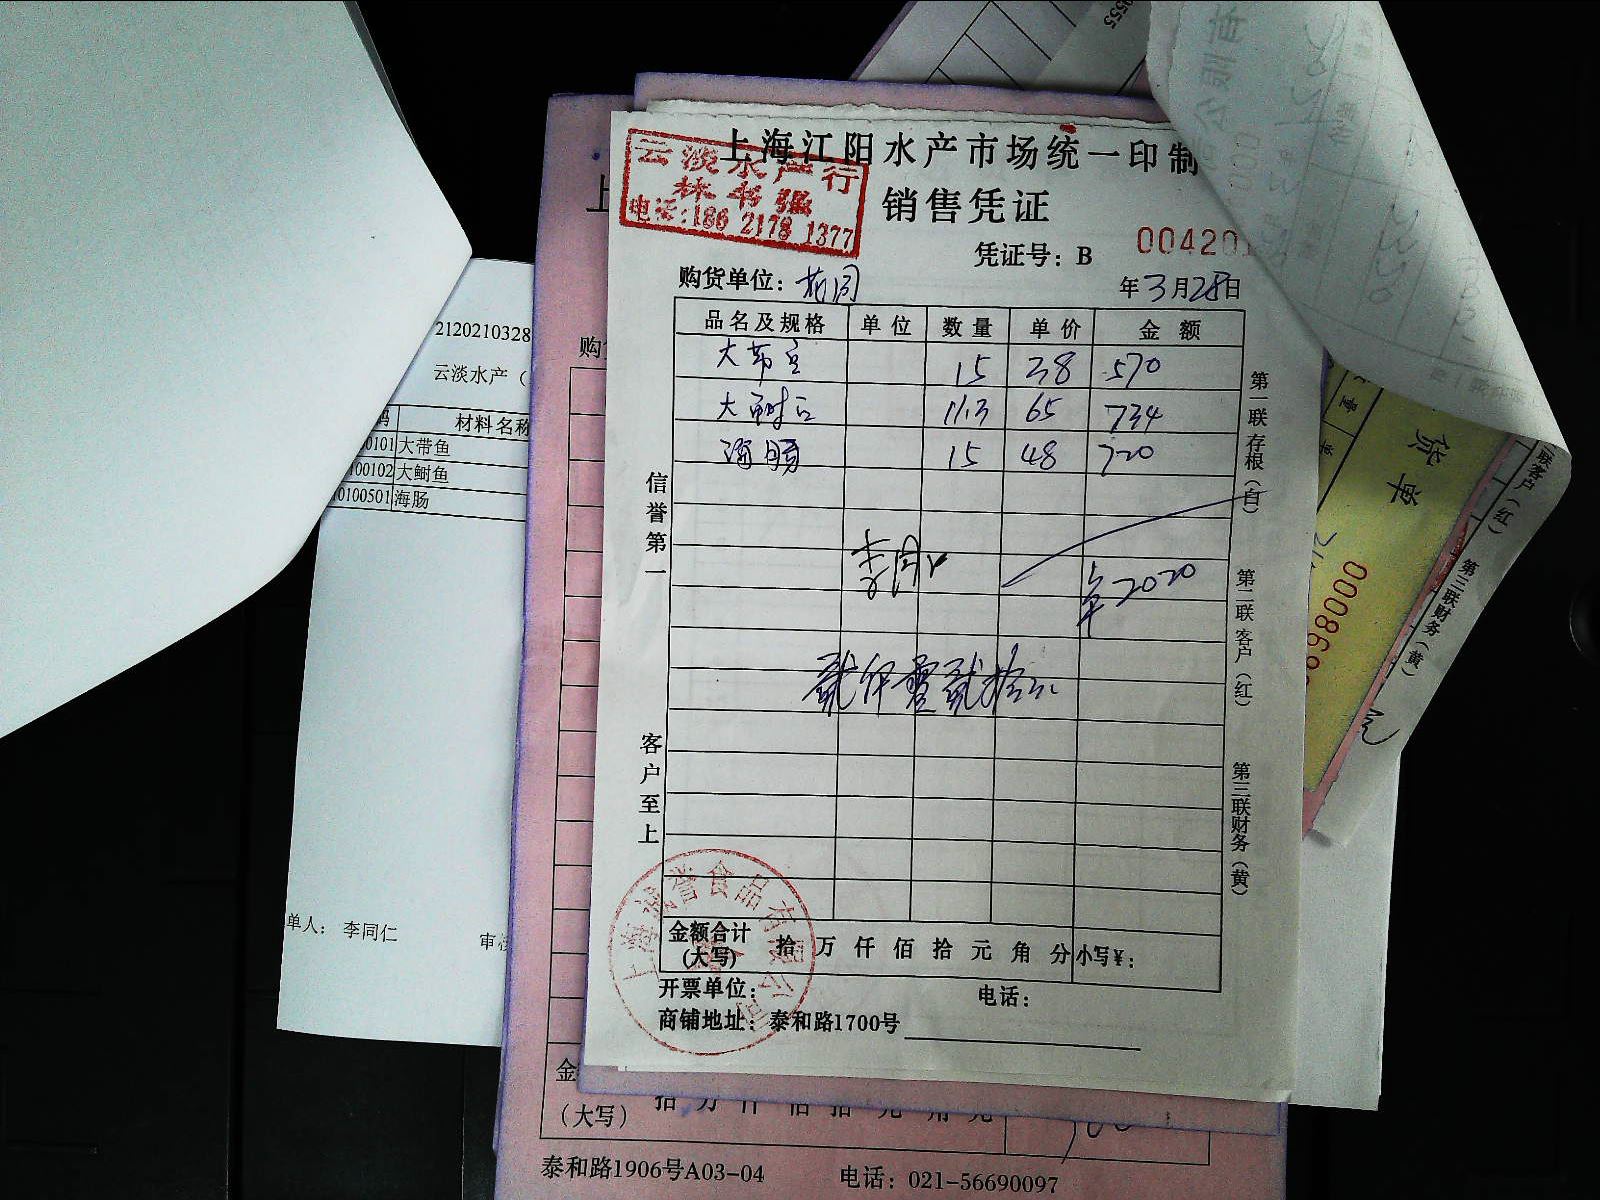 上海江阳水产市场统一印制
销售凭证
云淡水产行
林书强
电话:186 2178 1377
凭证号：B 00420
购货单位：花同
年3月28日
品名及规格 单位 数量 单价 金额
大带鱼 15 38 570
大鲥鱼 11.3 65 734
海肠 15 48 720
第一联存根（白）
第二联客户（红）
第三联财务（黄）
信誉第一
客户至上
¥2020
贰仟零贰拾元
金额合计（大写） 拾万仟佰拾元角分 小写¥：
开票单位：
电话：
商铺地址：泰和路1700号
上海诚誉食品有限公司
2120210328
云淡水产（
码 材料名称
0101 大带鱼
00102 大鲥鱼
0100501 海肠
单人： 李同仁
审
上
购
金
（大写） 拾万仟佰拾元角
泰和路1906号A03-04
电话：021-56690097
货单
联客户（红）
第三联财务（黄）
0555